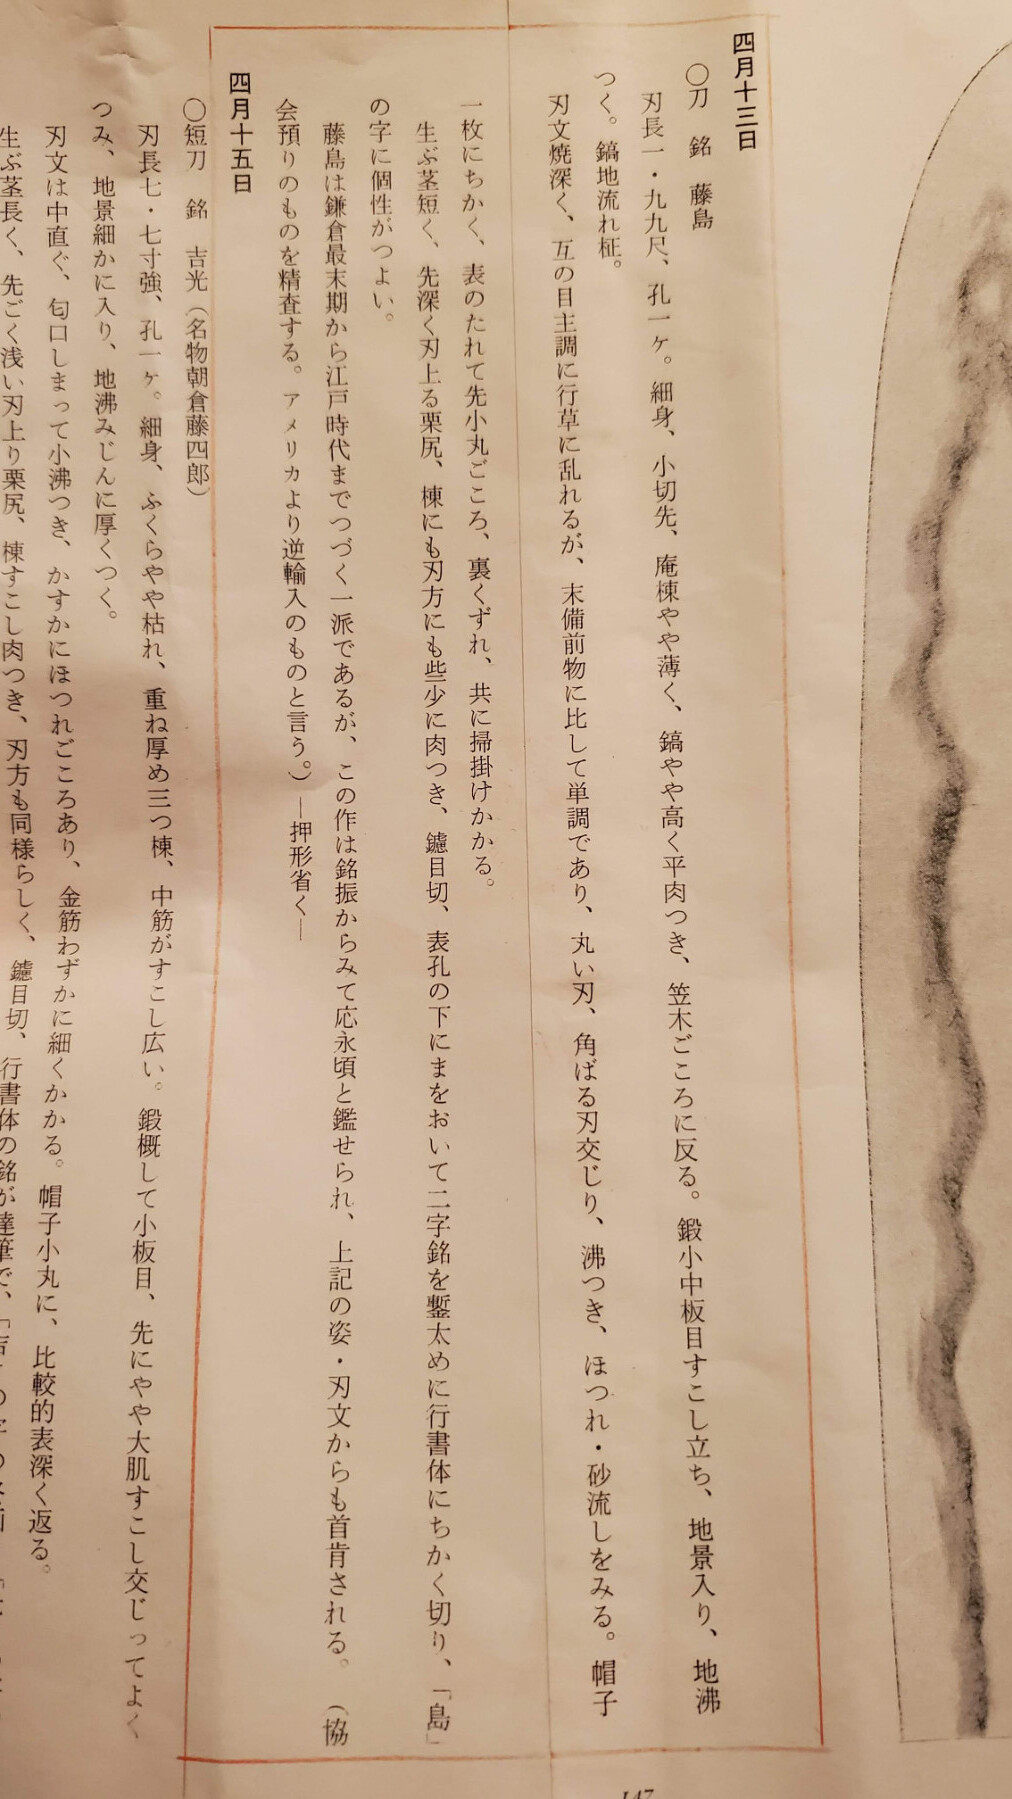 四月十三日
〇刀　銘　藤島
刃長一・九九尺、孔一ヶ。細身、小切先、庵棟やや薄く、鎬やや高く平肉つき、笠木ごころに反る。鍛小中板目すこし立ち、地景入り、地沸
つく。鎬地流れ柾。
刃文焼深く、互の目主調に行草に乱れるが、末備前物に比して単調であり、丸い刃、角ばる刃交じり、沸つき、ほつれ・砂流しをみる。帽子
一枚にちかく、表のたれて先小丸ごころ、裏くずれ、共に掃掛けかかる。
生ぶ茎短く、先深く刃上る栗尻、棟にも刃方にも些少に肉つき、鑢目切、表孔の下にまをおいて二字銘を鏨太めに行書体にちかく切り、「島」
の字に個性がつよい。
藤島は鎌倉最末期から江戸時代までつづく一派であるが、この作は銘振からみて応永頃と鑑せられ、上記の姿・刃文からも首肯される。（協
会預りのものを精査する。アメリカより逆輸入のものと言う。）―押形省く―
四月十五日
〇短刀　銘　吉光（名物朝倉藤四郎）
刃長七・七寸強、孔一ヶ。細身、ふくらやや枯れ、重ね厚め三つ棟、中筋がすこし広い。鍛概して小板目、先にやや大肌すこし交じってよく
つみ、地景細かに入り、地沸みじんに厚くつく。
刃文は中直ぐ、匂口しまって小沸つき、かすかにほつれごころあり、金筋わずかに細くかかる。帽子小丸に、比較的表深く返る。
生ぶ茎長く、先ごく浅い刃上り栗尻、棟すこし肉つき、刃方も同様らしく、鑢目切、行書体の銘が達筆で、
147